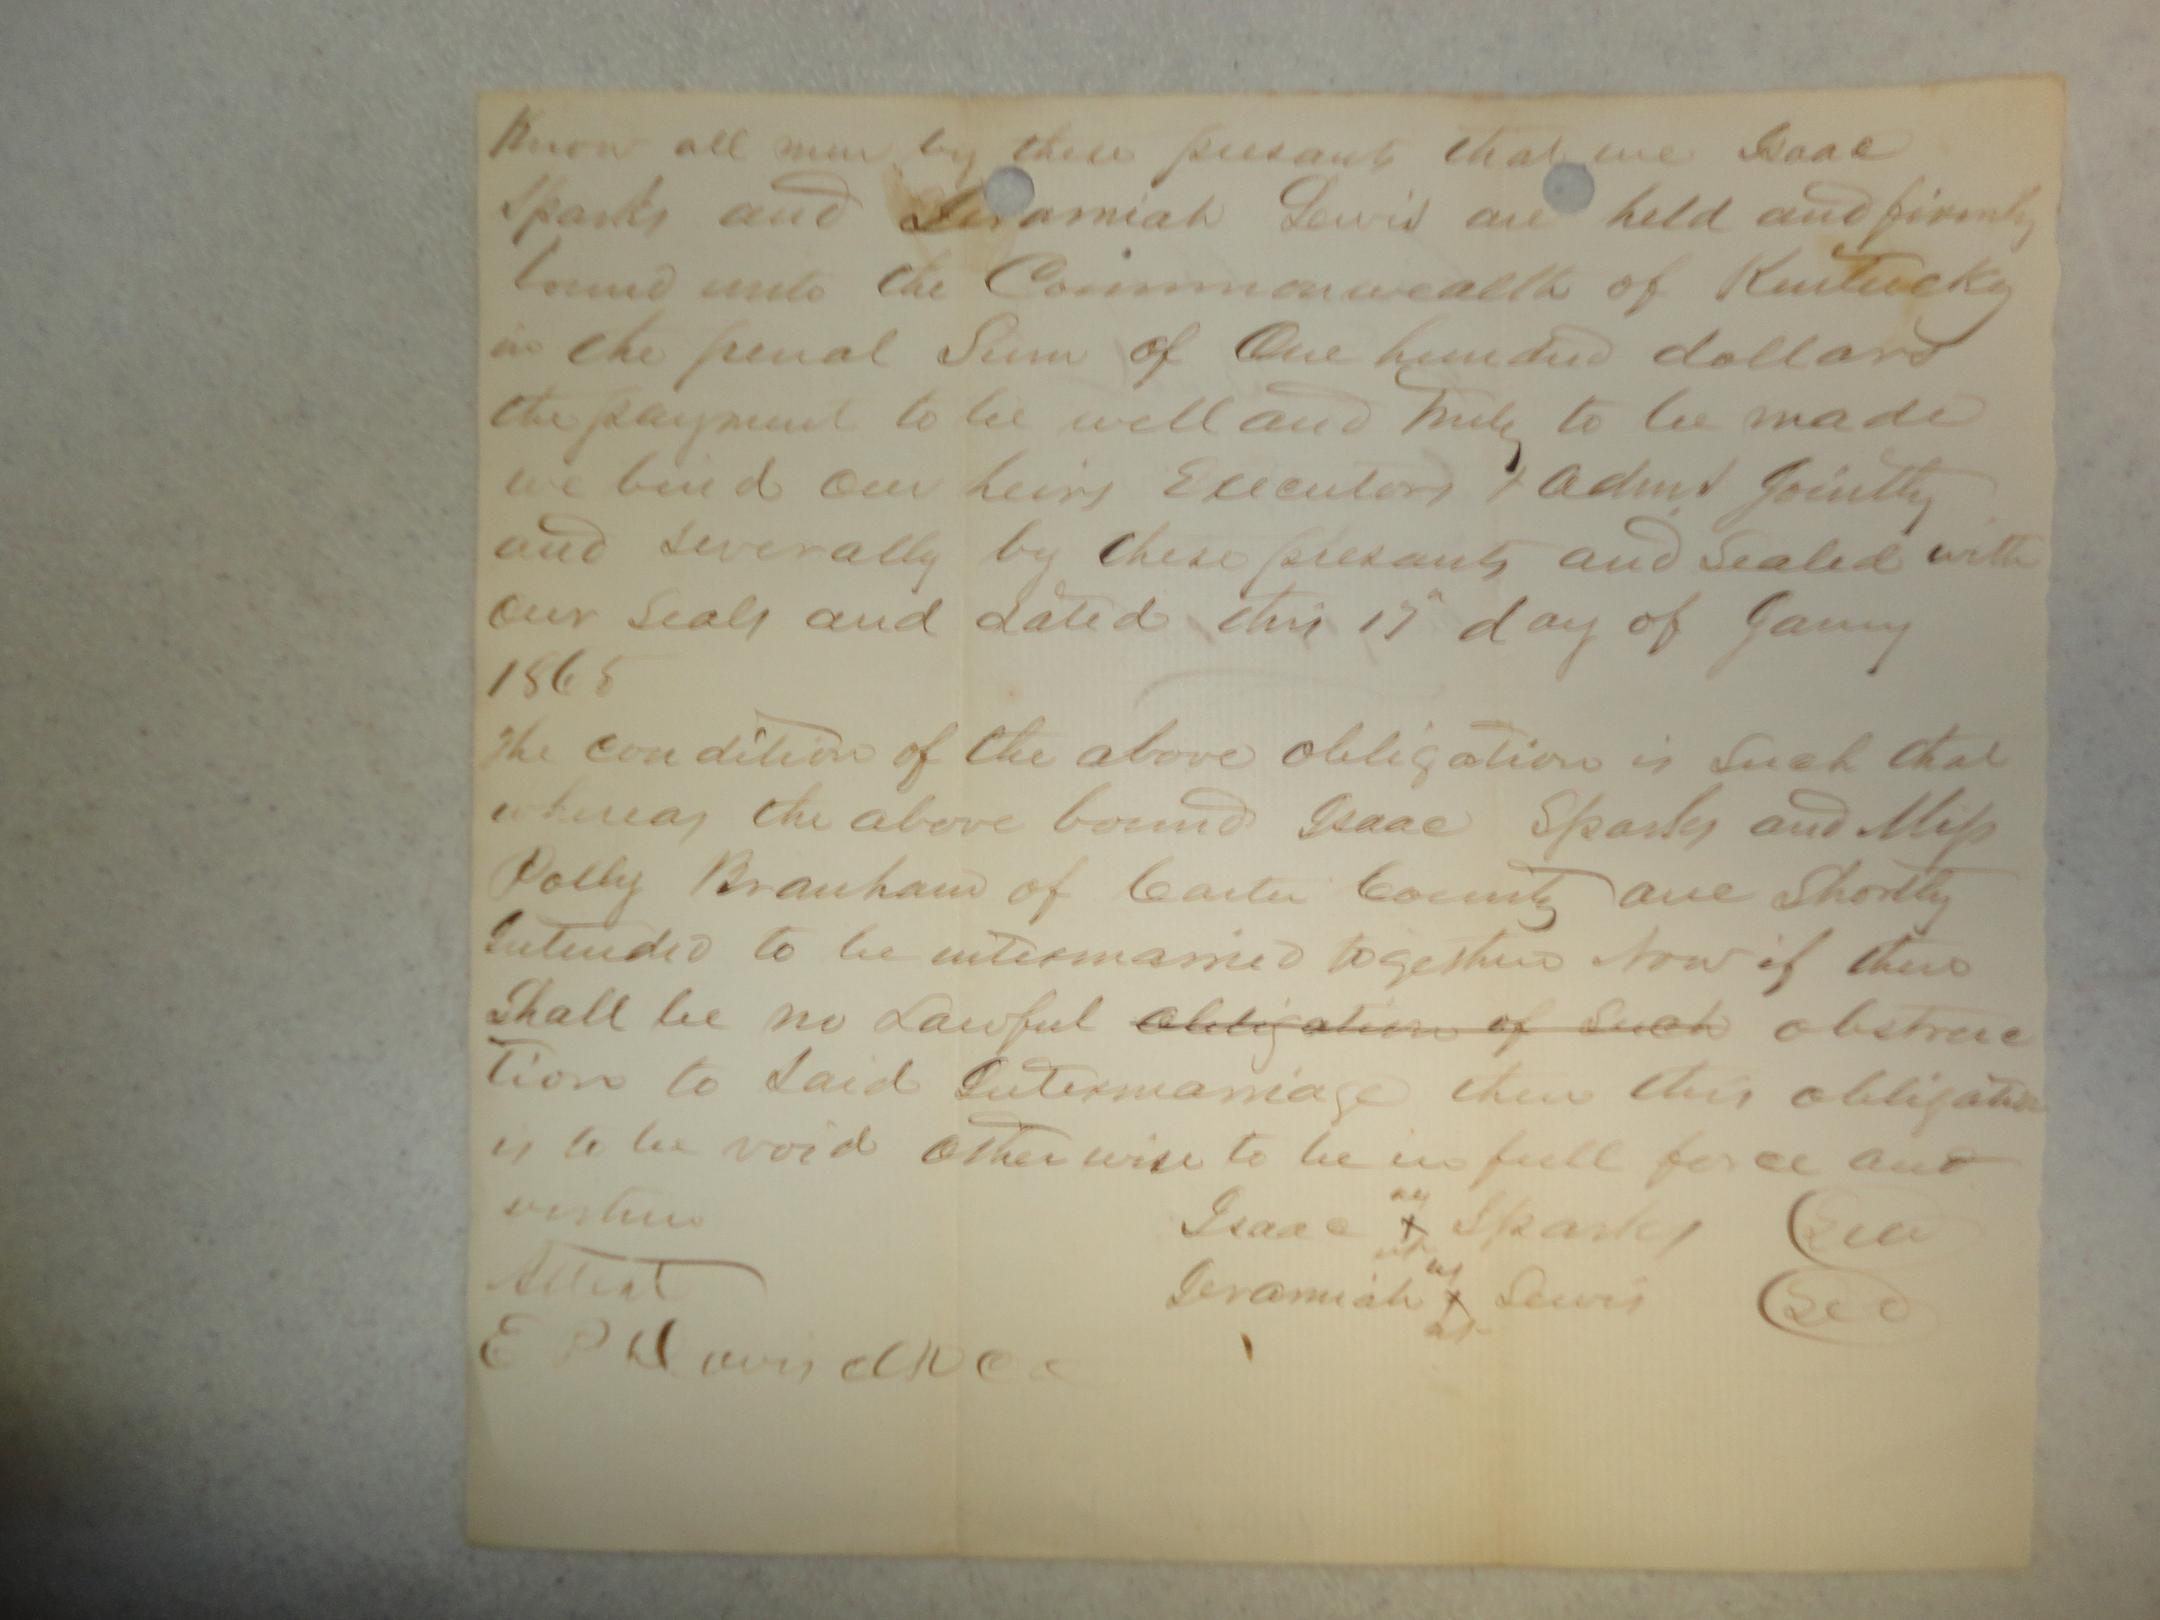 Know all men by these presants that we Isaac
Sparks and Jeramiah Lewis are held and firmly
bound unto the Commonwealth of Kentucky
in the penal Sum of One hundred dollars
the payment to be well and truly to be made
we bind our heirs Executors & Adms Jointly
and severally by these presants and sealed with
our seals and dated this day of Jany
186
The condition of the above obligation is such that
whereas the above bound Isaac Sparks and Miss
Polly Branham of Carter County are Shortly
Intended to be intermarried together Now if there
Shall be no Lawful obligation of such obstruc
tion to said Intermarriage then this obligation
is to be void otherwise to be in full force and
virtue
Isaac X Sparks
Attest
Jeramiah X Lewis
E P Davis